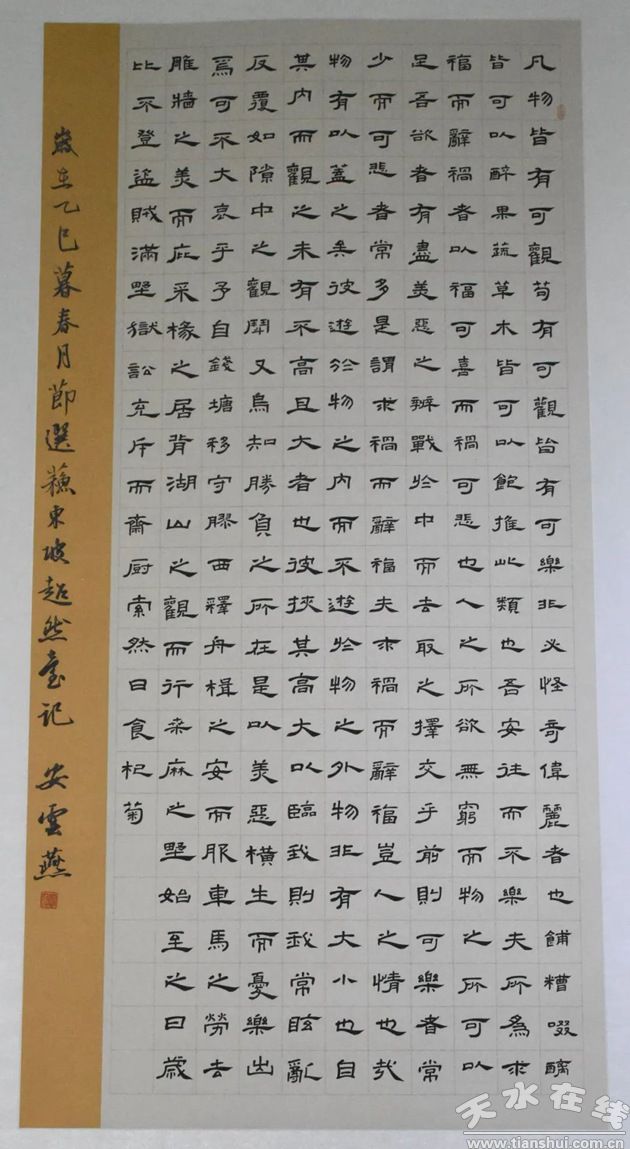 凡物皆有可觀苟有可觀皆有可樂非必怪奇偉麗者也餔糟啜醨
皆可以醉果蔬草木皆可以飽推此類也吾安往而不樂夫所為求
福而辭禍者以福可喜而禍可悲也人之所欲無窮而物之所可以
足吾欲者有盡美惡之辨戰於中而去取之擇交乎前則可樂者常
少而可悲者常多是謂求禍而辭福夫求禍而辭福豈人之情也哉
物有以蓋之矣彼遊於物之內而不遊於物之外物非有大小也自
其內而觀之未有不高且大者也彼挾其高大以臨我則我常眩亂
反覆如隙中之觀鬥又烏知勝負之所在是以美惡橫生而憂樂出
焉可不大哀乎予自錢塘移守膠西釋舟楫之安而服車馬之勞去
雕牆之美而庇采椽之居背湖山之觀而行桑麻之野始至之日歲
比不登盜賊滿野獄訟充斥而齋廚索然日食杞菊
歲在乙巳暮春月節選蘇東坡超然臺記 安雲燕
天水在线
www.tianshui.com.cn